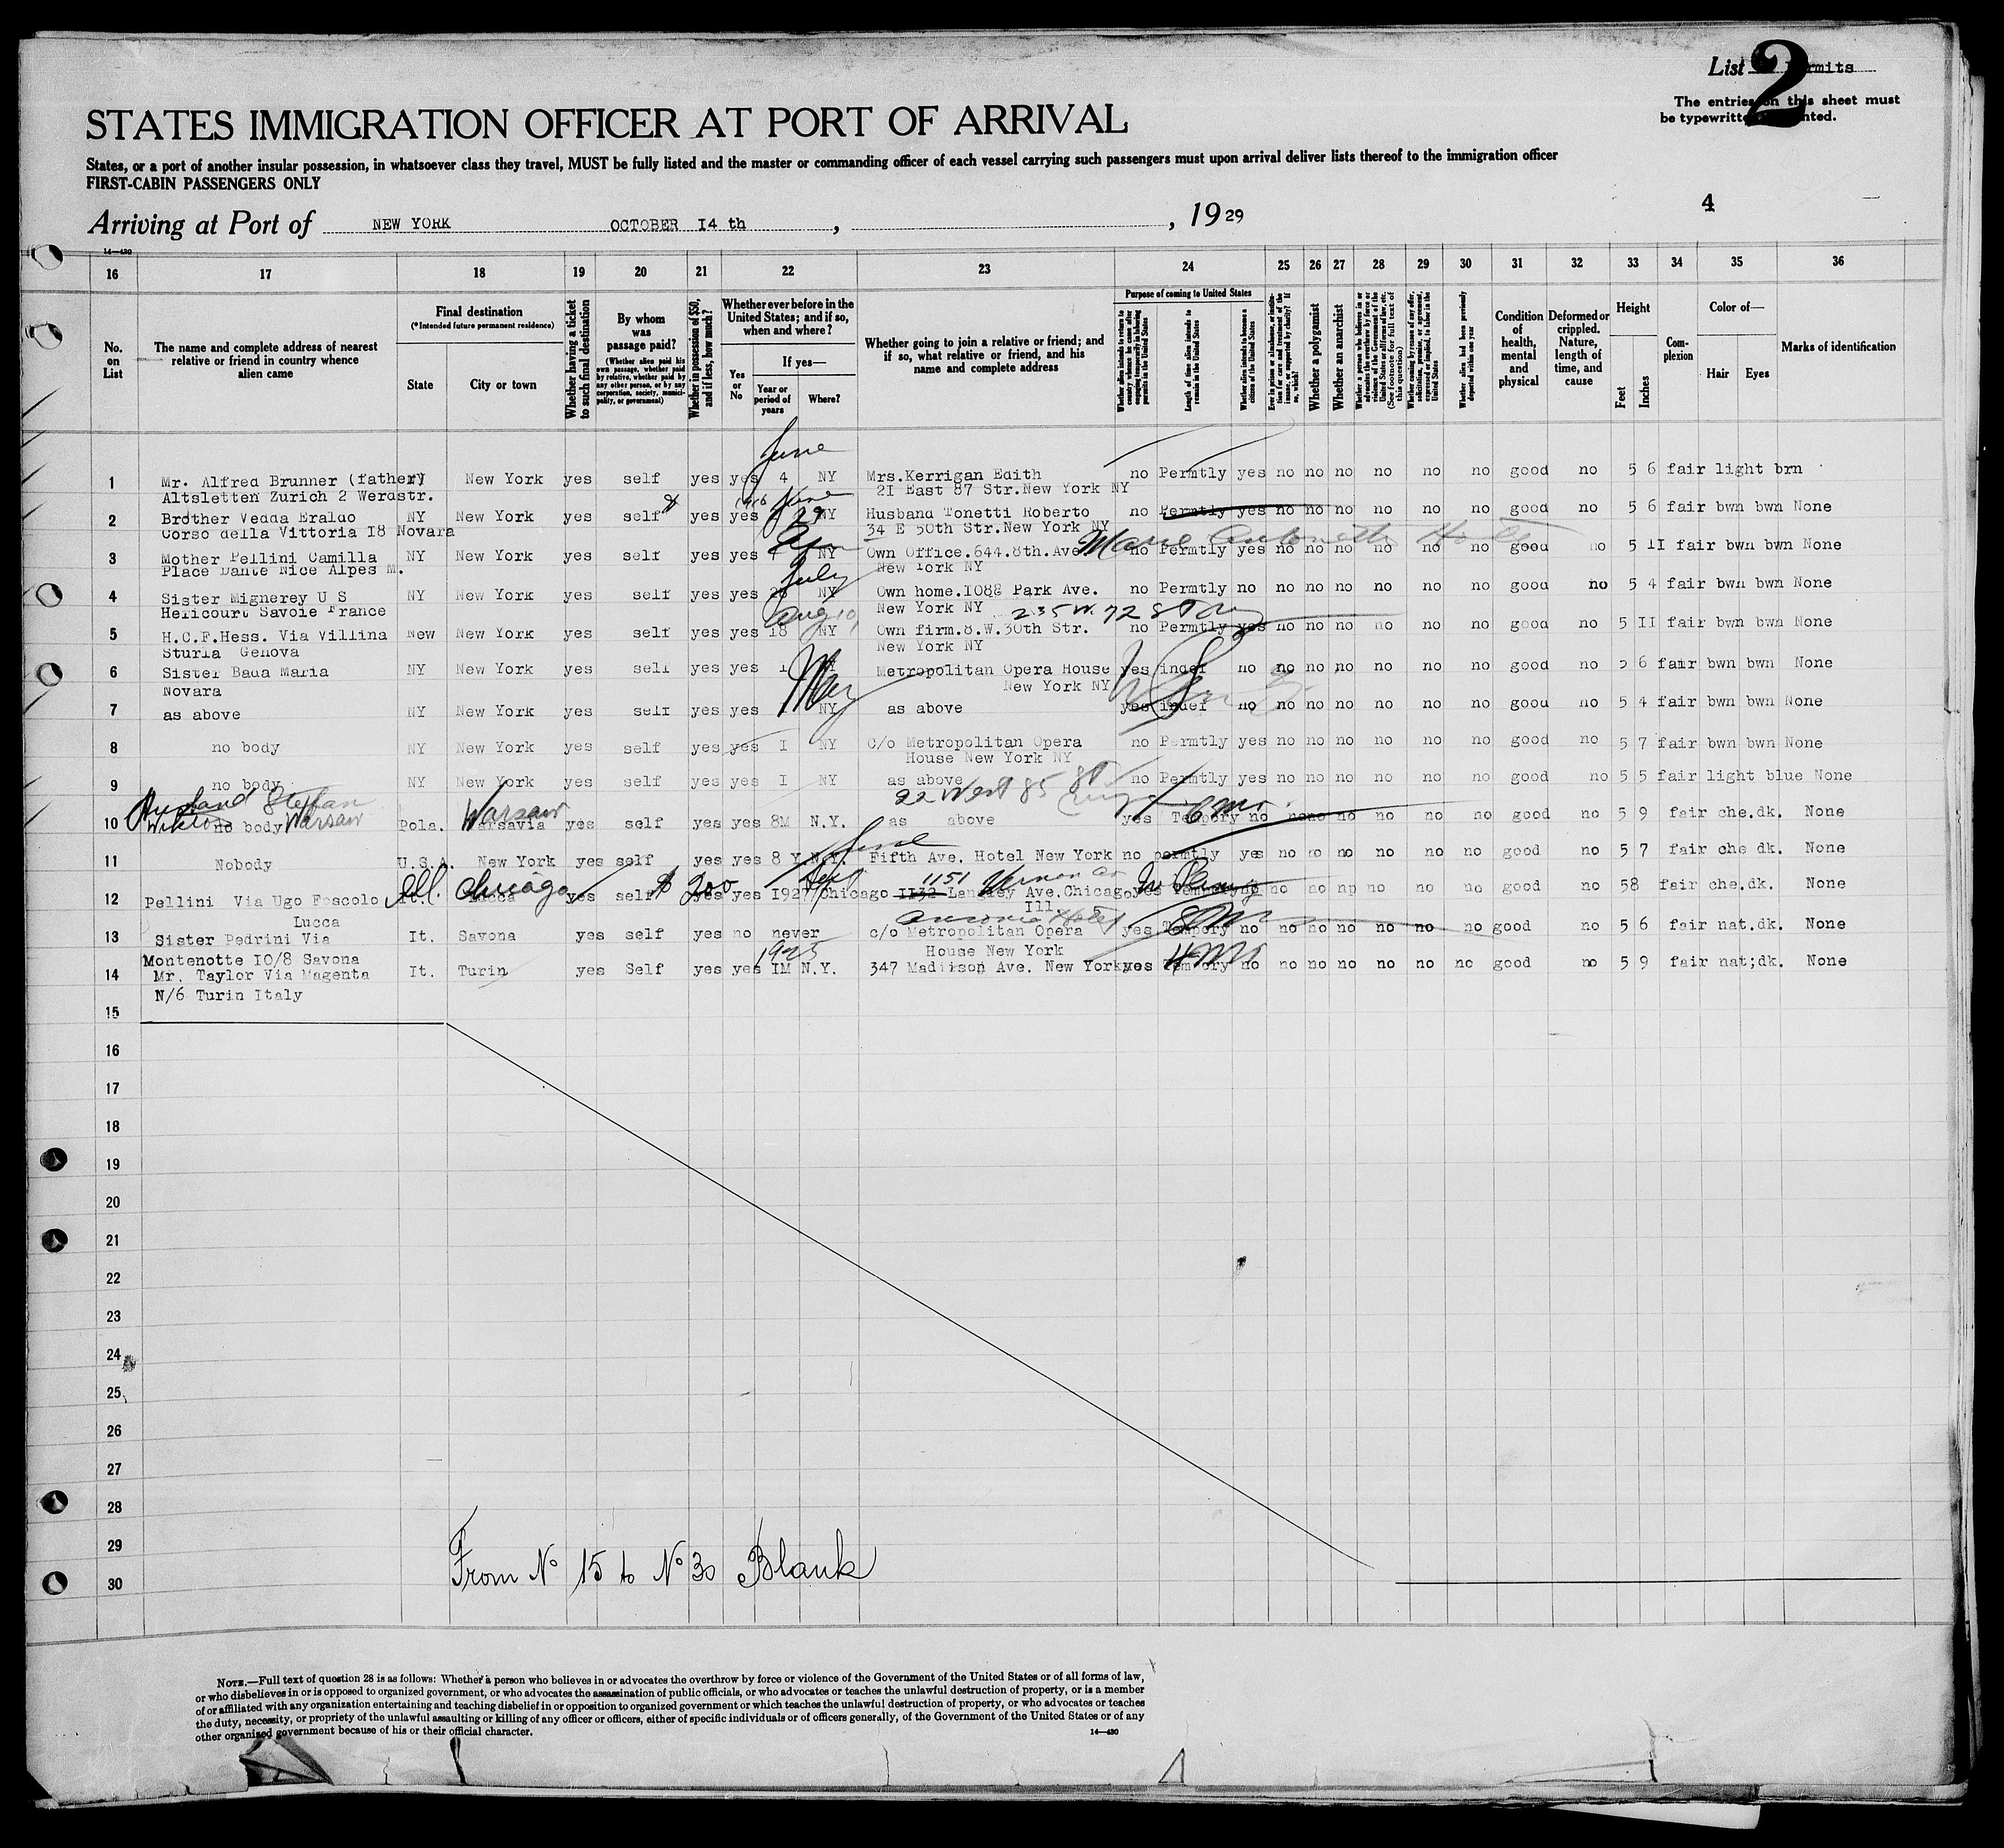 List
2
The entries on this sheet must
be typewritten or printed.
STATES IMMIGRATION OFFICER AT PORT OF ARRIVAL
States, or a port of another insular possession, in whatsoever class they travel, MUST be fully listed and the master or commanding officer of each vessel carrying such passengers must upon arrival deliver lists thereof to the immigration officer
FIRST-CABIN PASSENGERS ONLY
4
Arriving at Port of NEW YORK OCTOBER I4 th , , 1929
14—430
16 17 18 19 20 21 22 23 24 25 26 27 28 29 30 31 32 33 34 35 36
No. on List
The name and complete address of nearest relative or friend in country whence alien came
Final destination
(*Intended future permanent residence)
State
City or town
Whether having a ticket to such final destination
By whom was passage paid?
(Whether alien paid his own passage, whether paid by relative, whether paid by any other person, or by any corporation, society, municipality, or government)
Whether in possession of $50, and if less, how much?
Whether ever before in the United States; and if so, when and where?
Yes or No
If yes—
Year or period of years
Where?
Whether going to join a relative or friend; and if so, what relative or friend, and his name and complete address
Purpose of coming to United States
Length of time alien intends to remain in the United States
Whether a polygamist
Whether an anarchist
Condition of health, mental and physical
Deformed or crippled. Nature, length of time, and cause
Height
Feet
Inches
Complexion
Color of—
Hair
Eyes
Marks of identification
June
1 Mr. Alfred Brunner (father) New York yes self yes yes 4 NY Mrs.Kerrigan Edith no Permtly yes no no no no no no good no 5 6 fair light brn
Altsletten Zurich 2 Werdstr. 2I East 87 Str.New York NY
2 Brother Vedda Eraldo NY New York yes self yes yes NY Husband Tonetti Roberto no Permtly yes no no no no no no good no 5 6 fair bwn bwn None
Corso della Vittoria I8 Novara 34 E 50th Str.New York NY
3 Mother Pellini Camilla NY New York yes self yes yes NY Own Office.644.8th.Ave no Permtly yes no no no no no no good no 5 II fair bwn bwn None
Marie Antoinette Hotel
Place Dante Nice Alpes M. New York NY
July
4 Sister Mignerey U S NY New York yes self yes yes NY Own home.I088 Park Ave. no Permtly no no no no no no no good no 5 4 fair bwn bwn None
Hericourt Savoie France New York NY 235 W. 72 St
5 H.C.F.Hess. Via Villina New New York yes self yes yes I8 NY Own firm.8.W.30th Str. no Permtly yes no no no no no no good no 5 II fair bwn bwn None
Sturla Genova New York NY
6 Sister Bada Maria NY New York yes self yes yes Metropolitan Opera House yes indef no no no no no no no good no 5 6 fair bwn bwn None
Novara New York NY
May
7 as above NY New York yes self yes yes NY as above yes indef no no no no no no no good no 5 4 fair bwn bwn None
8 no body NY New York yes self yes yes I NY C/o Metropolitan Opera no Permtly yes no no no no no no good no 5 7 fair bwn bwn None
House New York NY
9 no body NY New York yes self yes yes I NY as above no Permtly yes no no no no no no good no 5 5 fair light blue None
22 West 85 St
Husband Steffan Warsaw
10 no body Warsaw Pola. Warsavia yes self yes yes 8M N.Y. as above yes Tempory no no no no no no no good no 5 9 fair che.dk. None
6 mo.
11 Nobody U.S.A. New York yes self yes yes 8 Y N.Y. Fifth Ave. Hotel New York no permtly yes no no no no no no good no 5 7 fair che dk. None
Ill. Chicago $ 200 1151 Vernon
12 Pellini Via Ugo Foscolo It. Lucca yes self yes yes I927 Chicago II32 Langley Ave.Chicago yes Tempory no no no no no no no good no 58 fair che.dk. None
Lucca Ill.
Ansonia Hotel
13 Sister Pedrini Via It. Savona yes self yes no never c/o Metropolitan Opera yes Tempory no no no no no no no good no 5 6 fair nat.dk. None
Montenotte IO/8 Savona 1925 House New York
14 Mr. Taylor Via Magenta It. Turin yes Self yes yes IM N.Y. 347 Madiison Ave. New York yes Temtory no no no no no no no good no 5 9 fair nat;dk. None
N/6 Turin Italy
15
16
17
18
19
20
21
22
23
24
25
26
27
28
29
30
From No 15 to No 30 Blank
NOTE.—Full text of question 28 is as follows: Whether a person who believes in or advocates the overthrow by force or violence of the Government of the United States or of all forms of law,
or who disbelieves in or is opposed to organized government, or who advocates the assassination of public officials, or who advocates or teaches the unlawful destruction of property, or is a member
of or affiliated with any organization entertaining and teaching disbelief in or opposition to organized government or which teaches the unlawful destruction of property, or who advocates or teaches
the duty, necessity, or propriety of the unlawful assaulting or killing of any officer or officers, either of specific individuals or of officers generally, of the Government of the United States or of any
other organized government because of his or their official character.
14—430